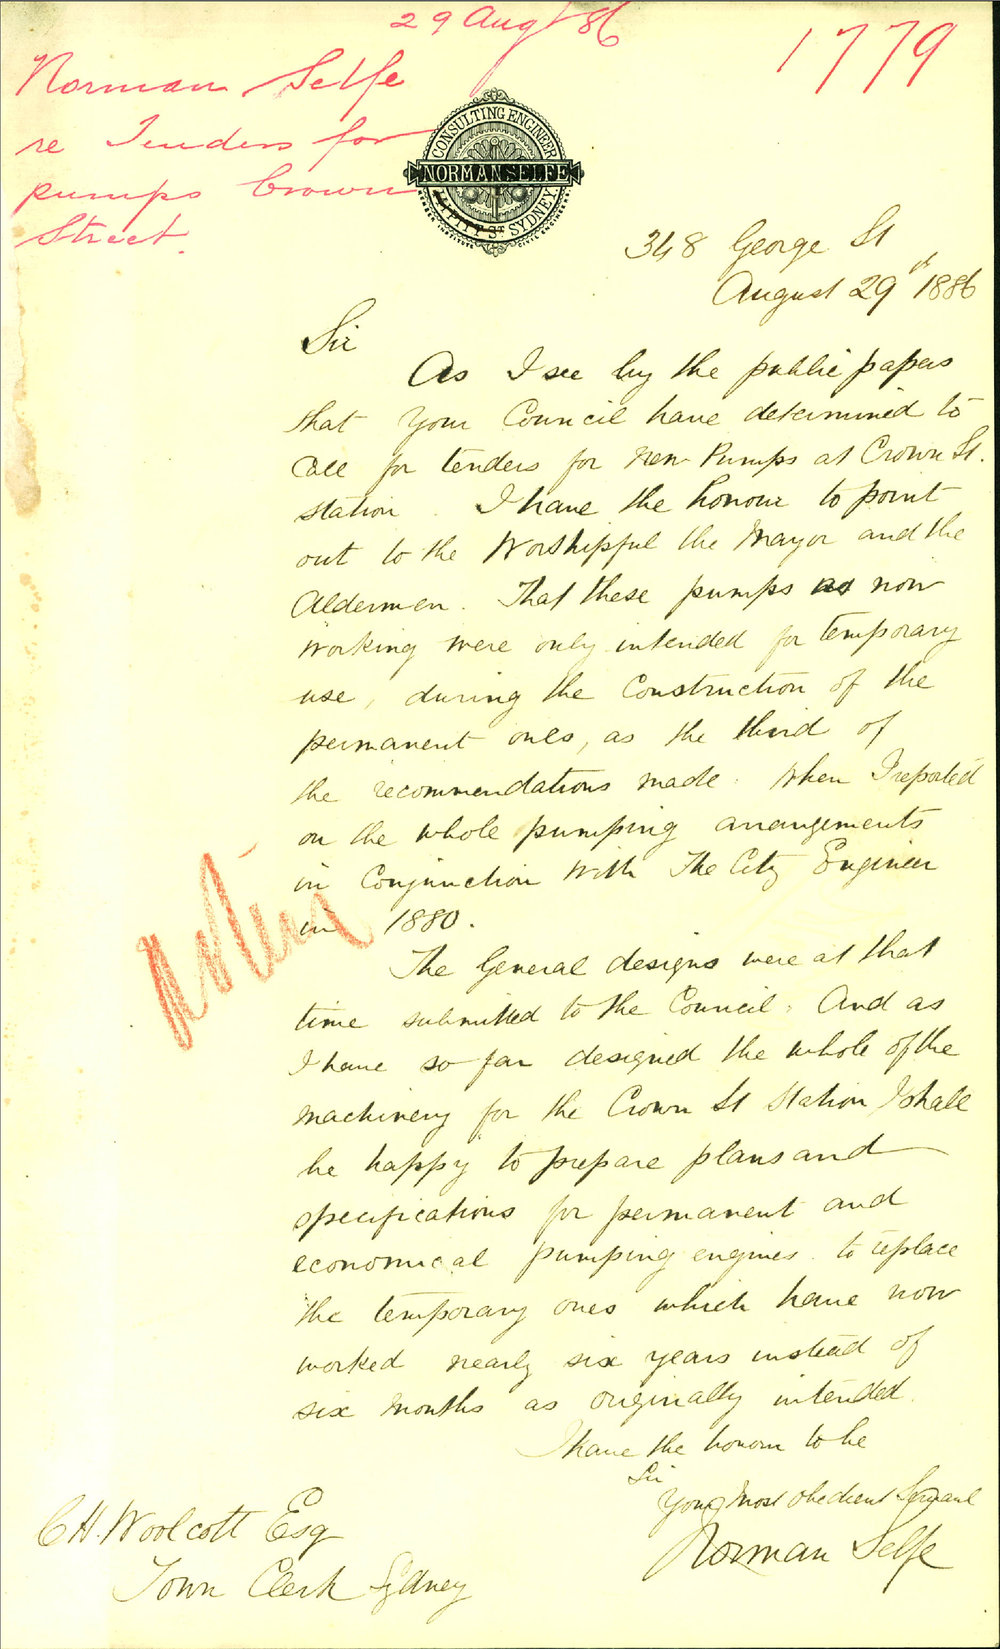 29 Augt 86
1779
Norman Selfe
re Tenders for
pumps Crown
Street.
CONSULTING ENGINEER
NORMAN SELFE
PITT ST SYDNEY
348 George St
August 29th 1886
Sir
As I see by the public papers
that your Council have determined to
call for tenders for new Pumps at Crown St.
station. I have the honour to point
out to the Worshipful the Mayor and the
Aldermen. That these pumps now
working were only intended for temporary
use, during the construction of the
permanent ones, as the third of
the recommendations made. When I reported
on the whole pumping arrangements
in Conjunction with The City Engineer
in 1880.
The General designs were at that
time submitted to the Council. And as
I have so far designed the whole of the
machinery for the Crown St Station I shall
be happy to prepare plans and
specifications for permanent and
economical pumping engines to replace
the temporary ones which have now
worked nearly six years instead of
six months as originally intended.
I have the honour to be
Sir
Your most obedient Servant
Norman Selfe
C H. Woolcott Esq
Town Clerk Sydney